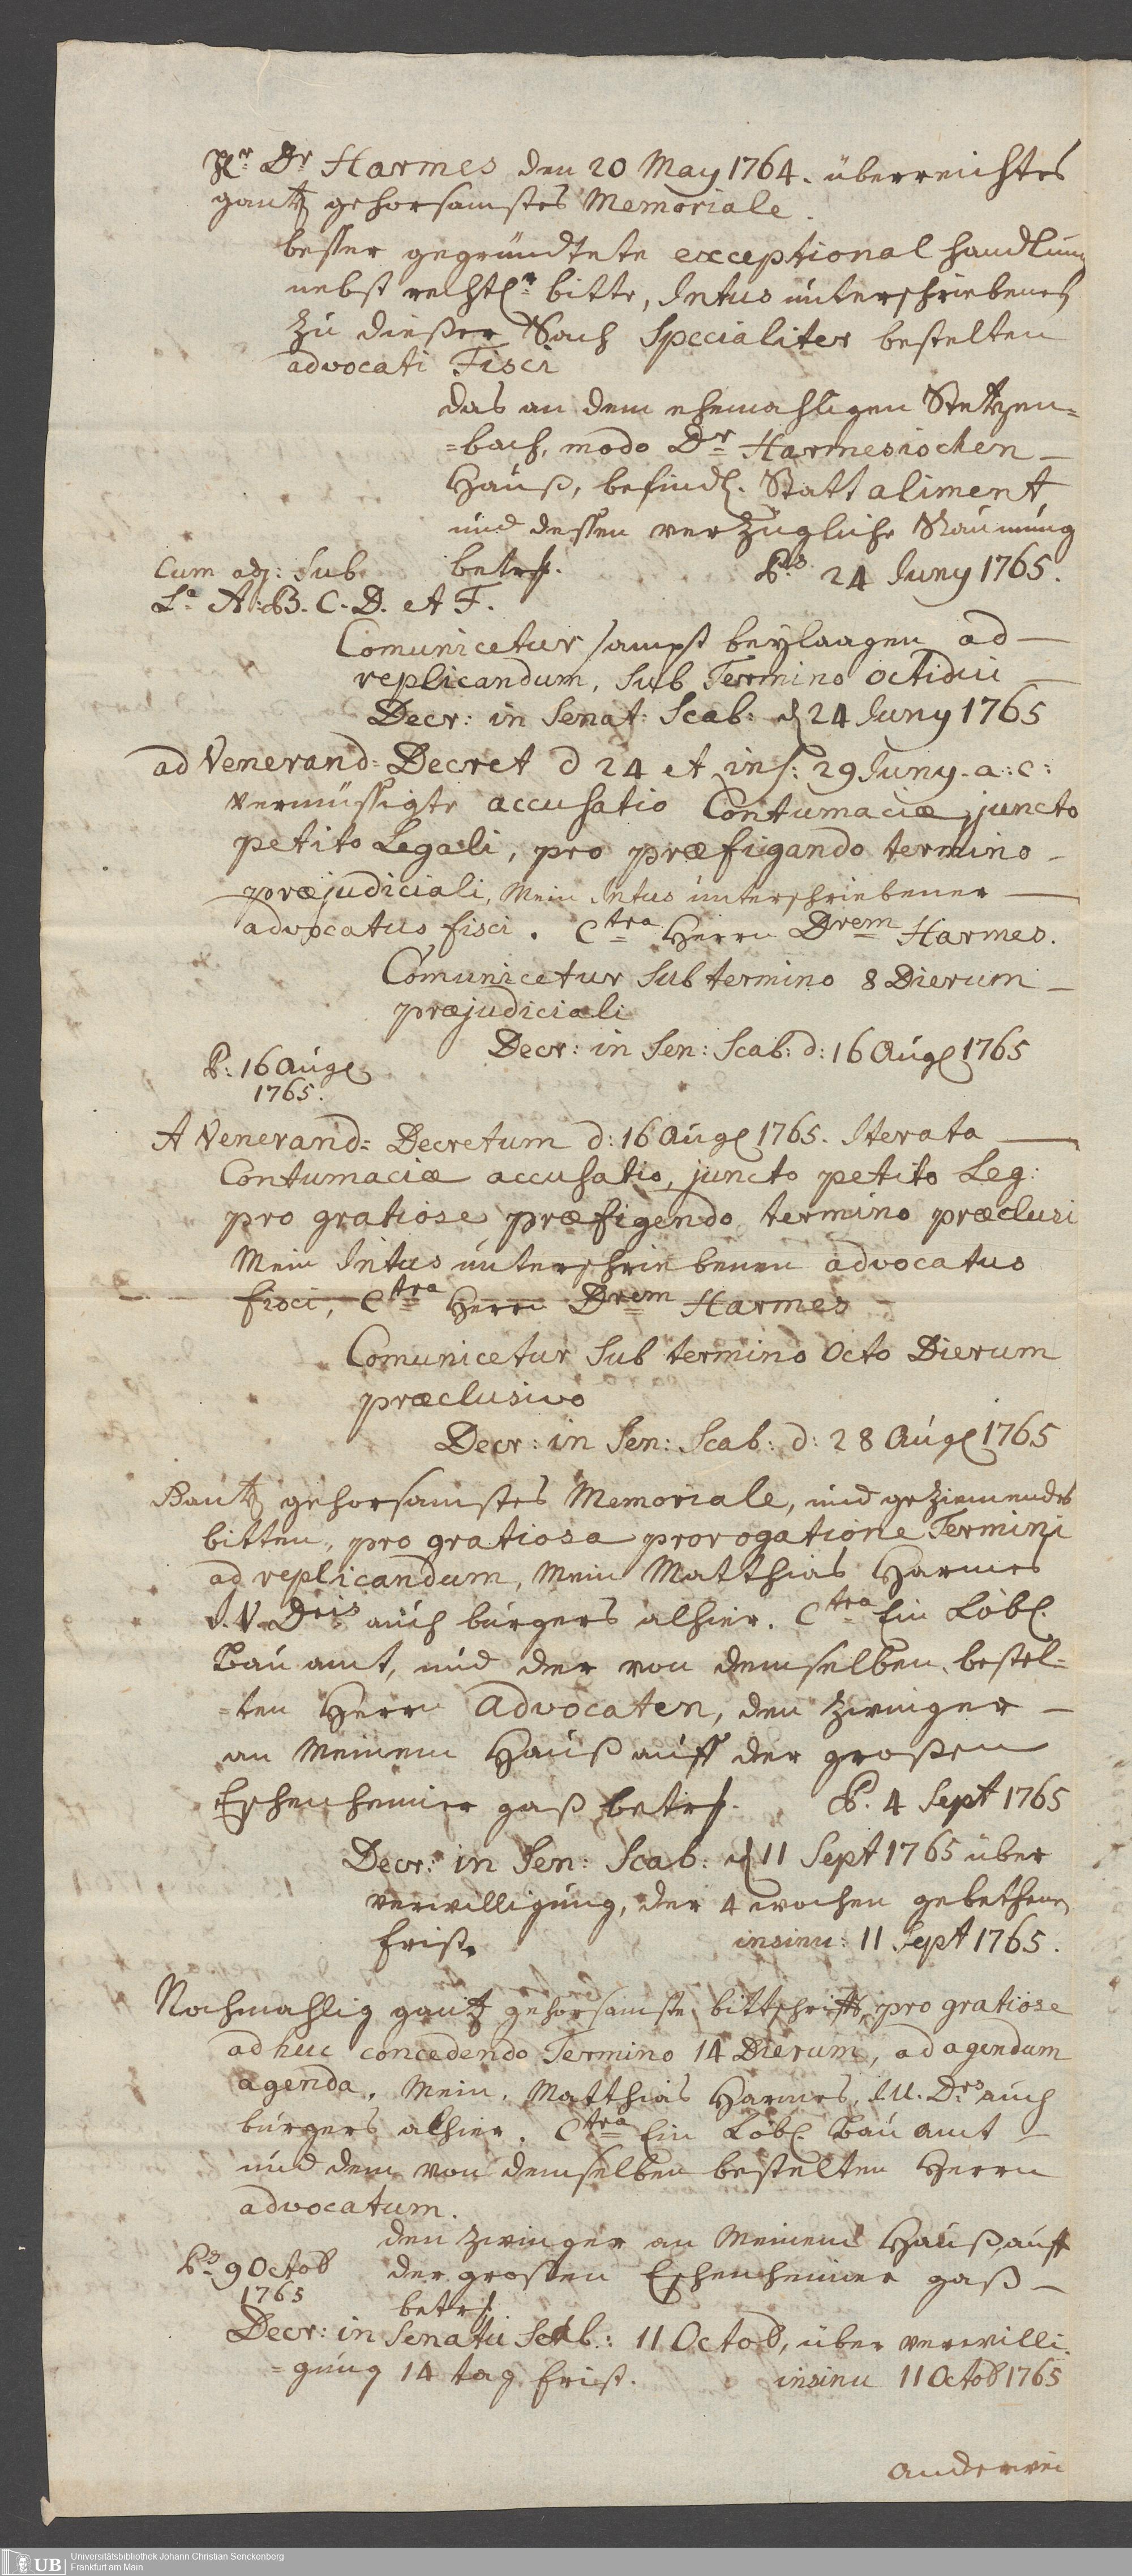 Hr Dr Harmes den 20 May 1764. überreichtes
gantz gehorsamstes Memoriale.
besser gegründtete exceptional handlung
nebst rechtl. bitte, Intus unterschriebenen
zu dießer Sach Specialiter bestelten
advocati Fisci
das an dem ehemahligen Stetzen=
=bach, modo Dr Harmesischen
Hauß, befindl. Statt aliment,
und dessen verzügliche Räumung
betrf. Ps. 24 Juny 1765.
Cum adj: Sub
La A. B. C. D. et F.
Comunicetur sampst beylaagen ad
replicandum, Sub Termino octidui
Decr: in Senat: Scab: d 24 Juny 1765
ad Venerand= Decret d 24 et ins: 29 Juny. a: c:
vermüssigte accusatio Contumaciæ, juncto
petito Legali, pro præfigando termino
præjudiciali, Mein Intus unterschriebener
advocatus fisci. Ctra Herrn Drem Harmes.
Comunicetur Sub termino 8 Dierum
præjudiciali
Decr: in Sen: Scab: d: 16 Aug 1765
P: 16 Aug
1765.
A Venerand= Decretum d: 16 Aug 1765. Iterata
Contumaciæ accusatio, juncto petito Leg:
pro gratiose præfigendo termino præclusi
Mein Intus unterschriebenen advocatus
fisci, Ctra Herrn Drem Harmes
Comunicetur Sub termino Octo Dierum
præclusivo
Decr: in Sen: Scab: d: 28 Aug 1765
Gantz gehorsamstes Memoriale, und geziemendes
bitten, pro gratiosa prorogatione Termini
ad replicandum, Mein Matthias Harmes
J. V. Dris auch burgers alhier. Ctra Ein Löbl.
Bau amt, und der von demselben bestel=
=ten Herrn Advocaten, den Zwinger
an Meinem Hauß auff der großen
Eschenheimer gaß betrf. P. 4 Sept 1765
Decr: in Sen: Scab: d 11 Sept 1765 über
verwilligung, der 4 wochen gebethenen
frist. insinu: 11 Sept 1765.
Nochmahlig gantz gehorsamste bittschrifft, pro gratiose
adhuc concedendo Termino 14 Dierum, ad agendum
agenda. Mein. Matthias Harmes, J. U. Drs auch
burgers alhier. Ctra Ein Löbl. Bau Amt
und dem von demselben bestelten Herrn
advocatum.
den Zwinger an Meinem Hauß, auff
Ps 9 Octob der grossen Eschenheimer gaß
1765 betrf
Decr: in Senatu Scab: 11 Octob, über verwilli
=gung 14 tag frist. insinu 11 Octob 1765
anderwei
UB Universitätsbibliothek Johann Christian Senckenberg
Frankfurt am Main